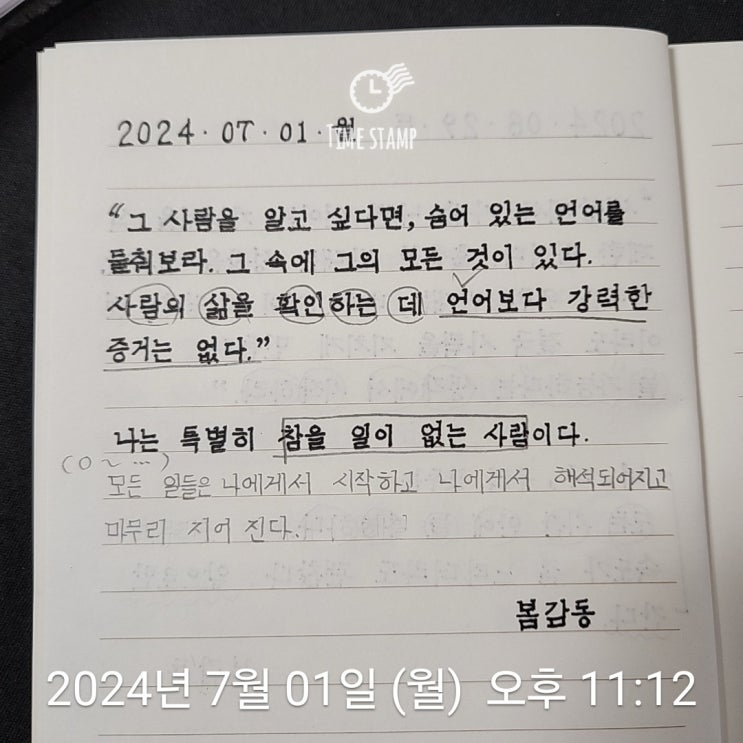 TIME STAMP
2024. 07. 01. 월
“그 사람을 알고 싶다면, 숨어 있는 언어를
들춰보라. 그 속에 그의 모든 것이 있다.
사람의 삶을 확인하는 데 언어보다 강력한
증거는 없다.”
나는 특별히 참을 일이 없는 사람이다.
(0~…)
모든 일들은 나에게서 시작하고 나에게서 해석되어지고
마무리 지어 진다.
봄감동
2024년 7월 01일 (월) 오후 11:12